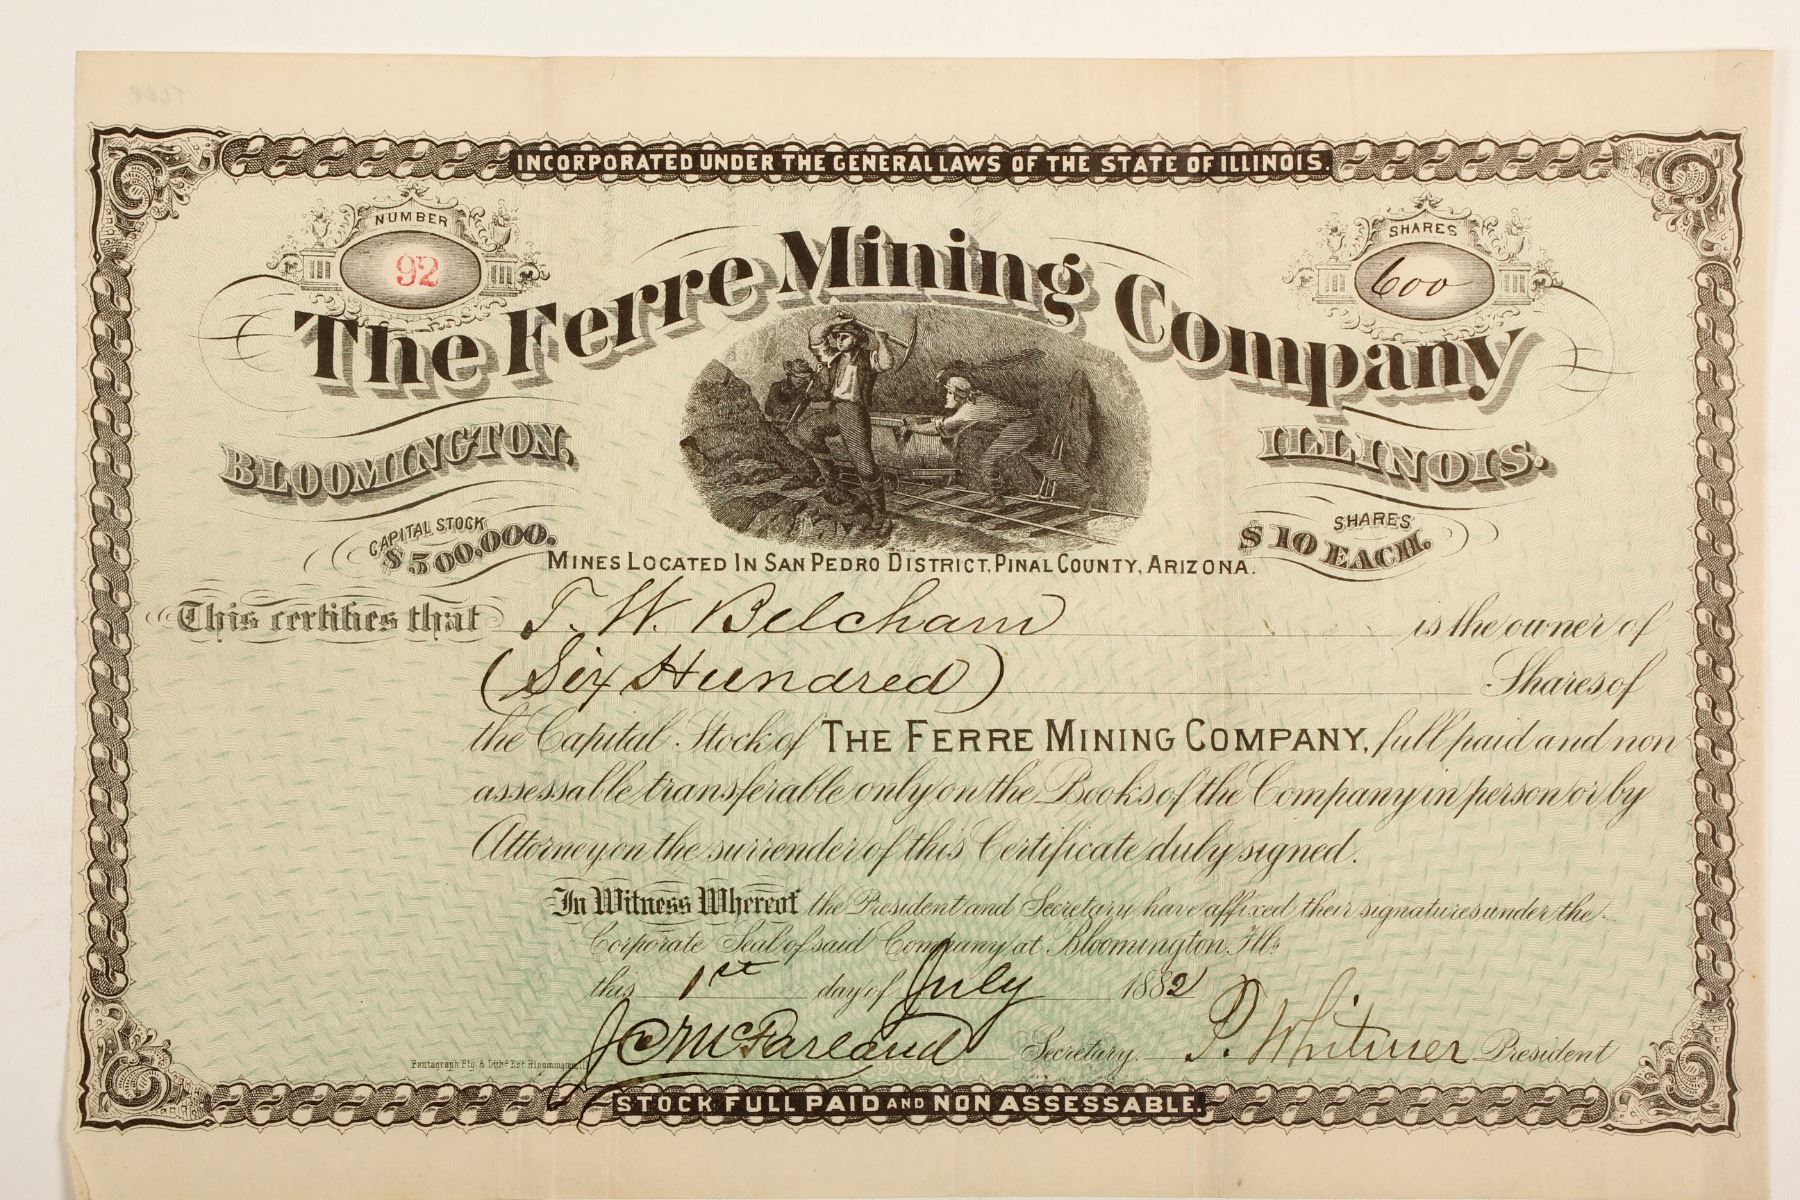 INCORPORATED UNDER THE GENERAL LAWS OF THE STATE OF ILLINOIS.
NUMBER
92
SHARES
600
The Ferre Mining Company
BLOOMINGTON,
ILLINOIS.
CAPITAL STOCK
$500,000.
SHARES
$10 EACH.
MINES LOCATED IN SAN PEDRO DISTRICT, PINAL COUNTY, ARIZONA.
This certifies that T. W. Belcham is the owner of
(Six Hundred) Shares of
the Capital Stock of THE FERRE MINING COMPANY, full paid and non
assessable transferable only on the Books of the Company in person or by
Attorney on the surrender of this Certificate duly signed.
In Witness Whereof the President and Secretary have affixed their signatures under the
Corporate Seal of said Company at Bloomington, Ill.
this 1st day of July 1882
J C McFarland Secretary. P. Whitmer President
Pantagraph Ptg & Litho Est Bloomington,
STOCK FULL PAID AND NON ASSESSABLE.